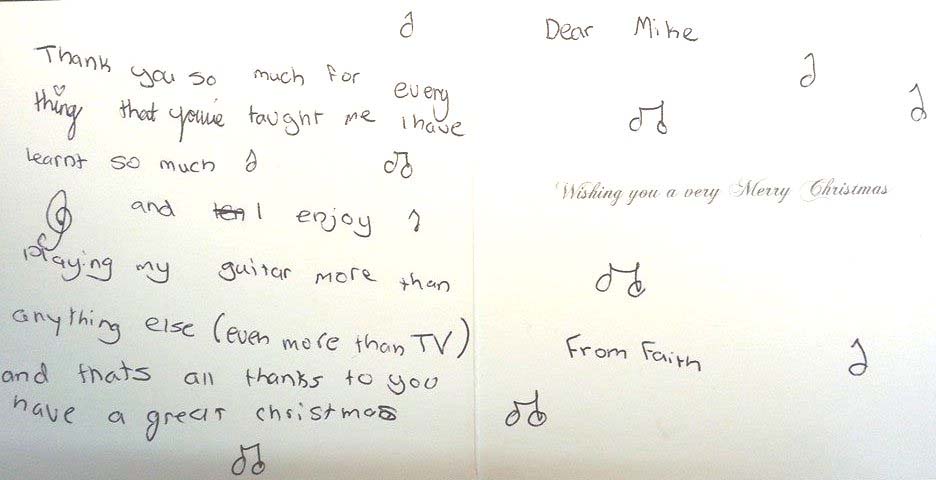 Thank you so much for every
thing that you've taught me i have
learnt so much
and I enjoy
playing my guitar more than
anything else (even more than TV)
and thats all thanks to you
have a great christmas
Dear Mike
Wishing you a very Merry Christmas
From Faith